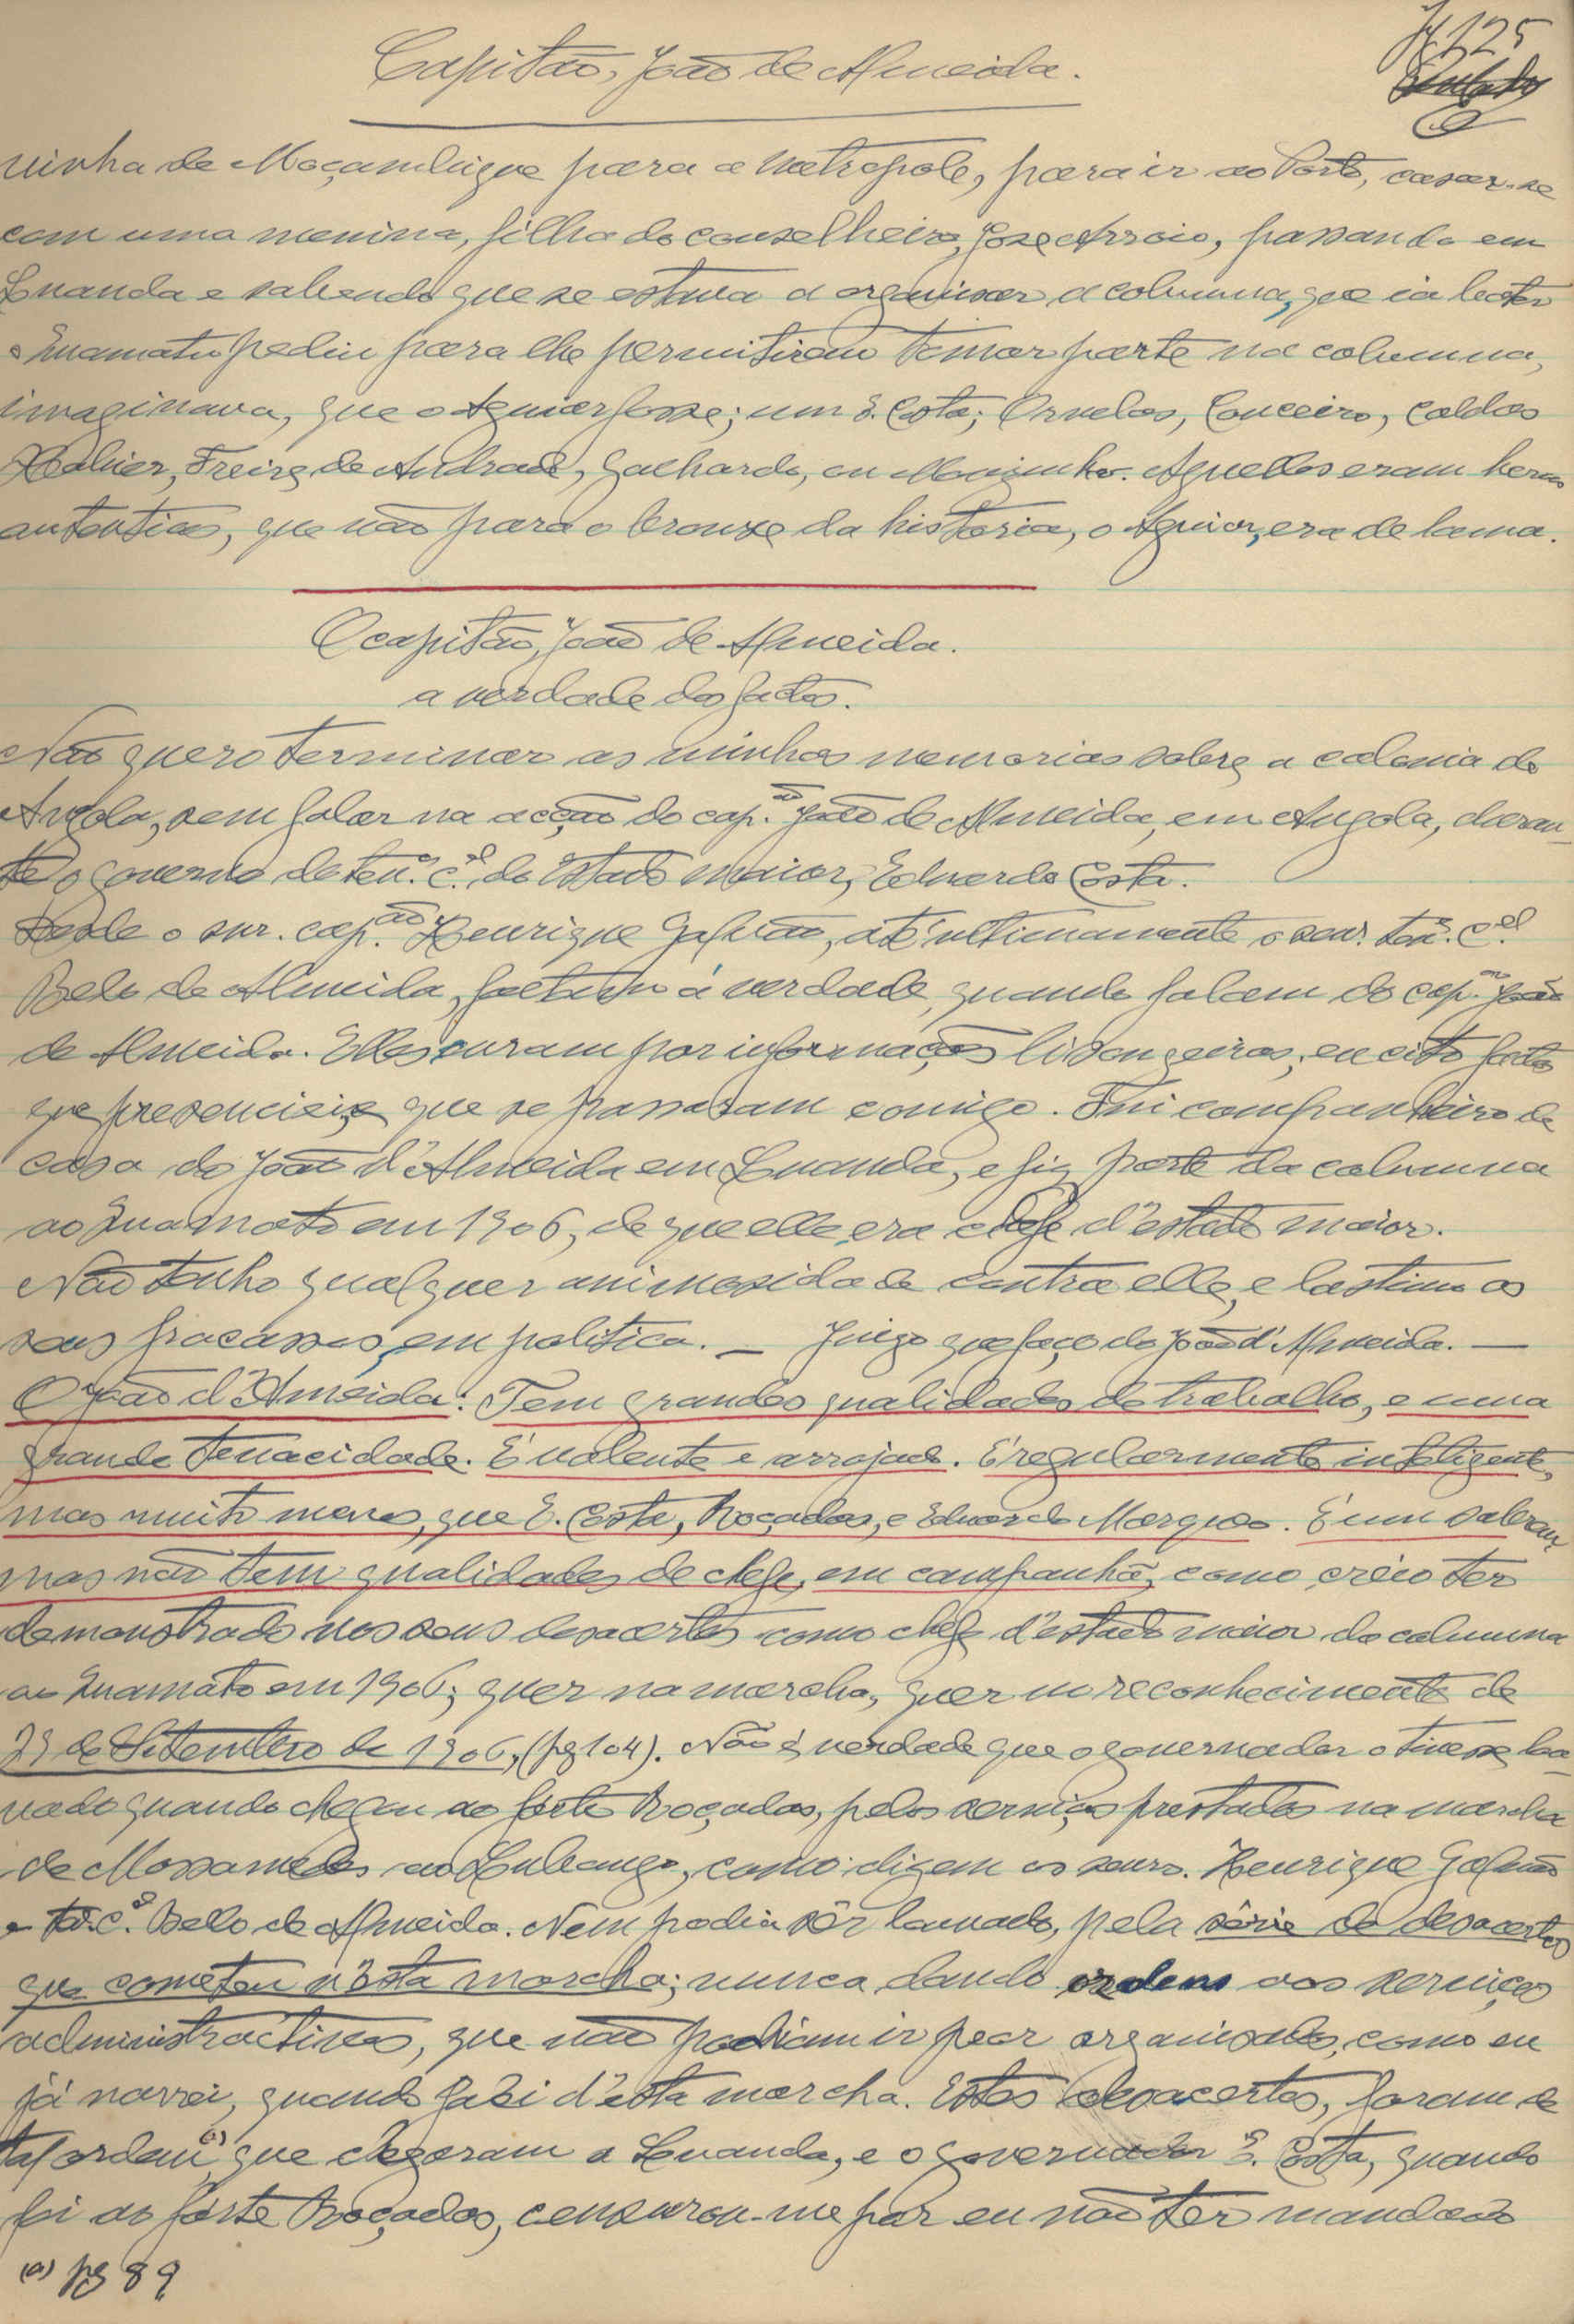 Capitão, João de Almeida.
pg 125
vinha de Moçambique para a metropole, para ir ao Porto, casar-se
com uma menina, filha do conselheiro, José Arroio, passando em
Luanda e sabendo que se estava a organisar a columna, que ia bater
o Quamato pediu para lhe permitirem tomar parte na columna,
imaginava, que o Aguiar fosse; um E. Costa; Ornelas, Couceiro, Caldas
Xavier, Freire de Andrade, Galhardo, ou Mousinho. Aquelles eram heroes
autenticos, que vão para o bronze da historia, o Aguiar, era de lama.
O capitão, João de Almeida.
a verdade dos factos.
Não quero terminar as minhas memorias sobre a colonia de
Angola, sem falar na acção do cap.ão João de Almeida, em Angola, duran-
te o governo do ten.e c.el do Estado maior, Eduardo Costa.
Desde o snr. cap.ão Henrique Galvão, até ultimamente o snr. ten.e C.el
Belo de Almeida, faltam á verdade, quando falam do cap.ão João
de Almeida. Elles juram por informações lisongeiras; eu cito factos
que presenciei e que se passaram comigo. Fui companheiro de
casa do João d'Almeida em Luanda, e fiz parte da columna
ao Quamato em 1906, de que elle era chefe d'estado maior.
Não tenho qualquer animosidade contra elle, e lastimo os
seus fracassos, em politica. — Juizo que faço do João d'Almeida. —
O João d'Almeida: Tem grandes qualidades de trabalho, e uma
grande tenacidade. É valente e arrojado. É regularmente inteligente,
mas muito menos, que E. Costa, Roçadas, e Eduardo Marques. É um
mas não tem qualidades de chefe, em campanha, como creio ter
demonstrado nos seus desacertos como chefe d'estado maior da columna
ao Quamato em 1906; quer na marcha, quer no reconhecimento de
29 de Setembro de 1906, (pg 104). Não é verdade que o governador o tivesse lou-
vado quando chegou ao forte Roçadas, pelos serviços prestados na marcha
de Mossamedes ao Lubango, como dizem os snrs. Henrique Galvão
e te. c.el Bello de Almeida. Nem podia sêr louvado, pela série de desacertos
que cometeu n'esta marcha; nunca dando ordens aos serviços
administractivos, que não podiam ir peor organisados, como eu
já narrei, quando falei d'esta marcha. Estes desacertos, foram de
tal ordem (a), que chegaram a Luanda, e o governador E. Costa, quando
foi ao forte Roçadas, censurou-me por eu não ter mandado
(a) pg 89